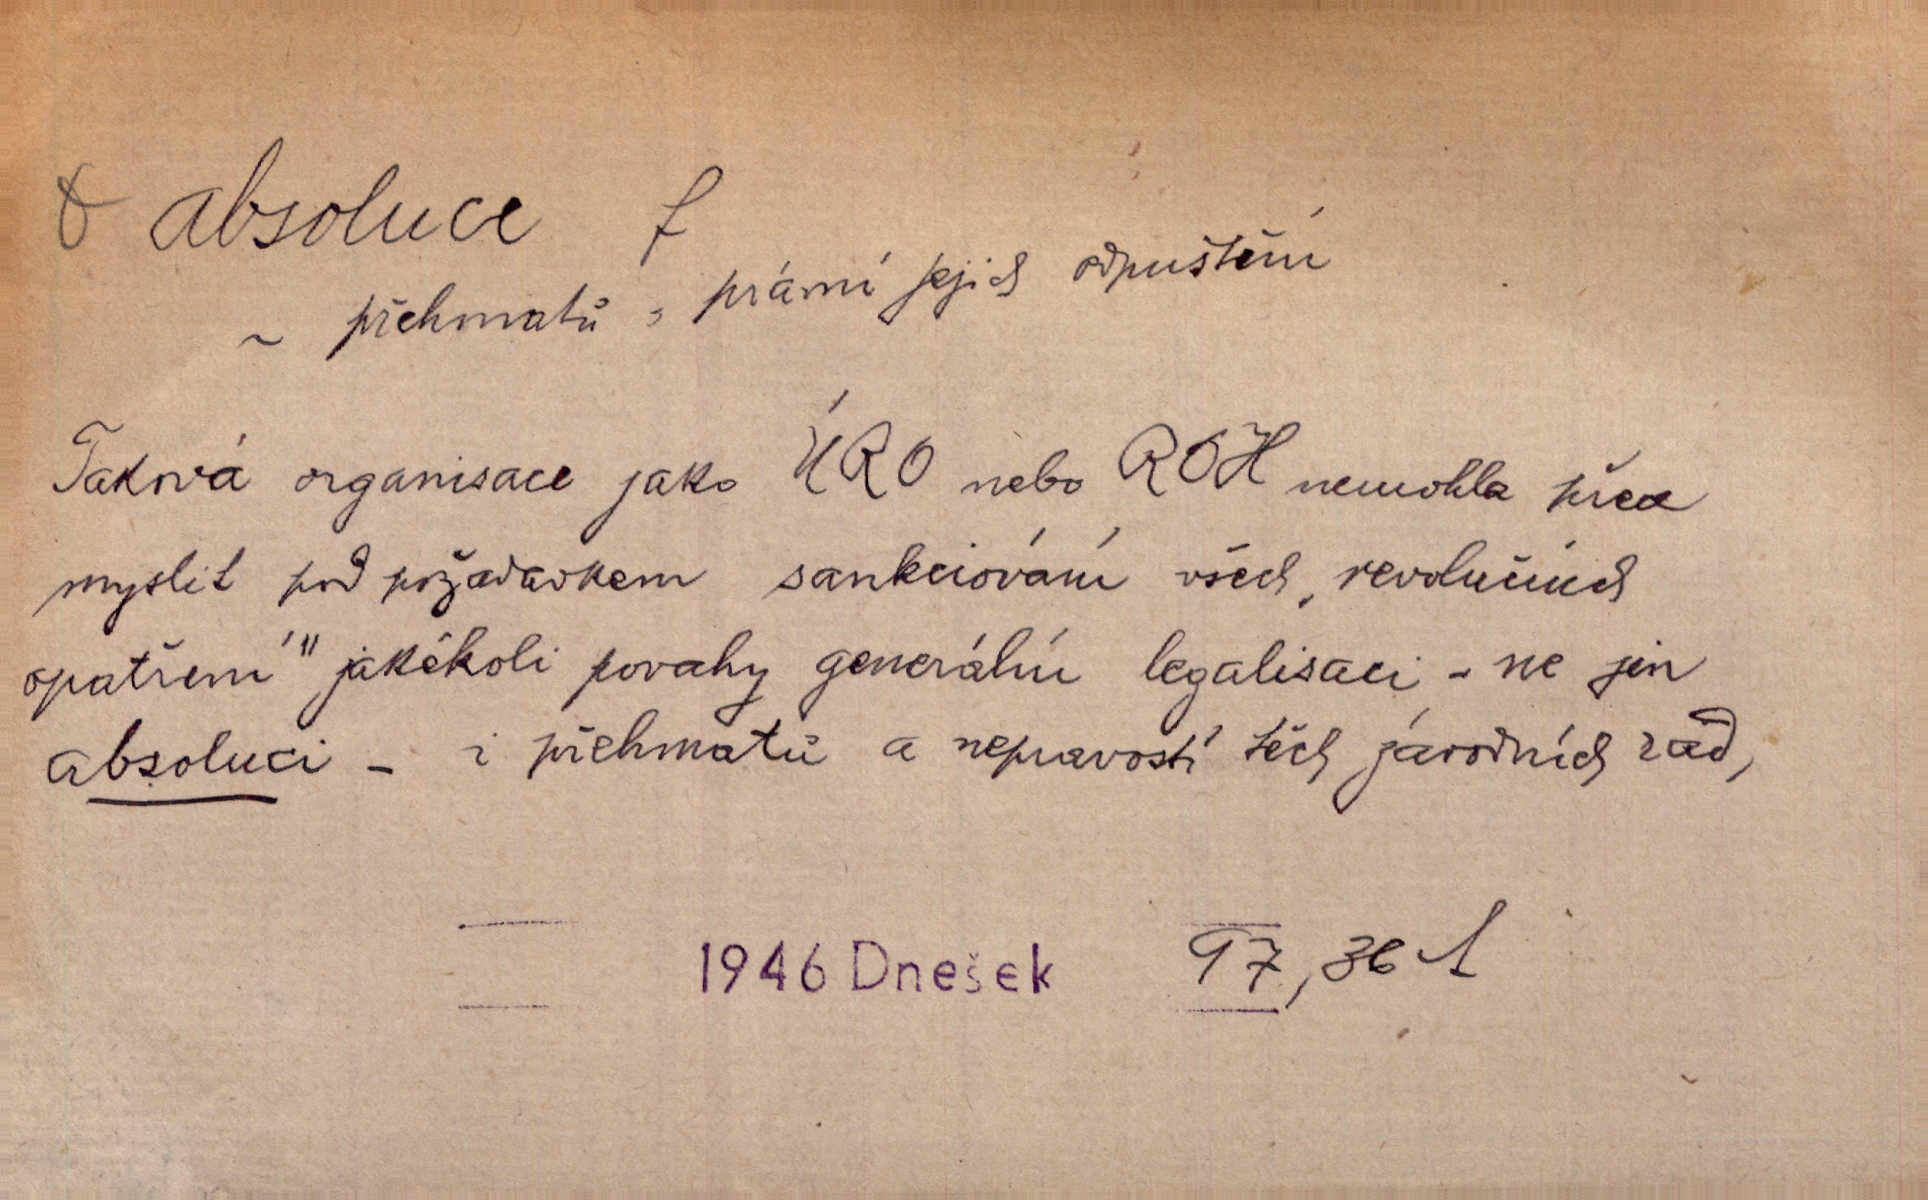 absoluce f
~ přehmatů, právní jejich odpuštění
Taková organisace jako ÚRO nebo ROH nemohla přece
myslit pod požadavkem sankciování všech „revolučních
opatření“ jakékoli povahy generální legalisaci - ne jen
absoluci - i přehmatů a nepravostí těch závodních rad,
1946 Dnešek 97, 36